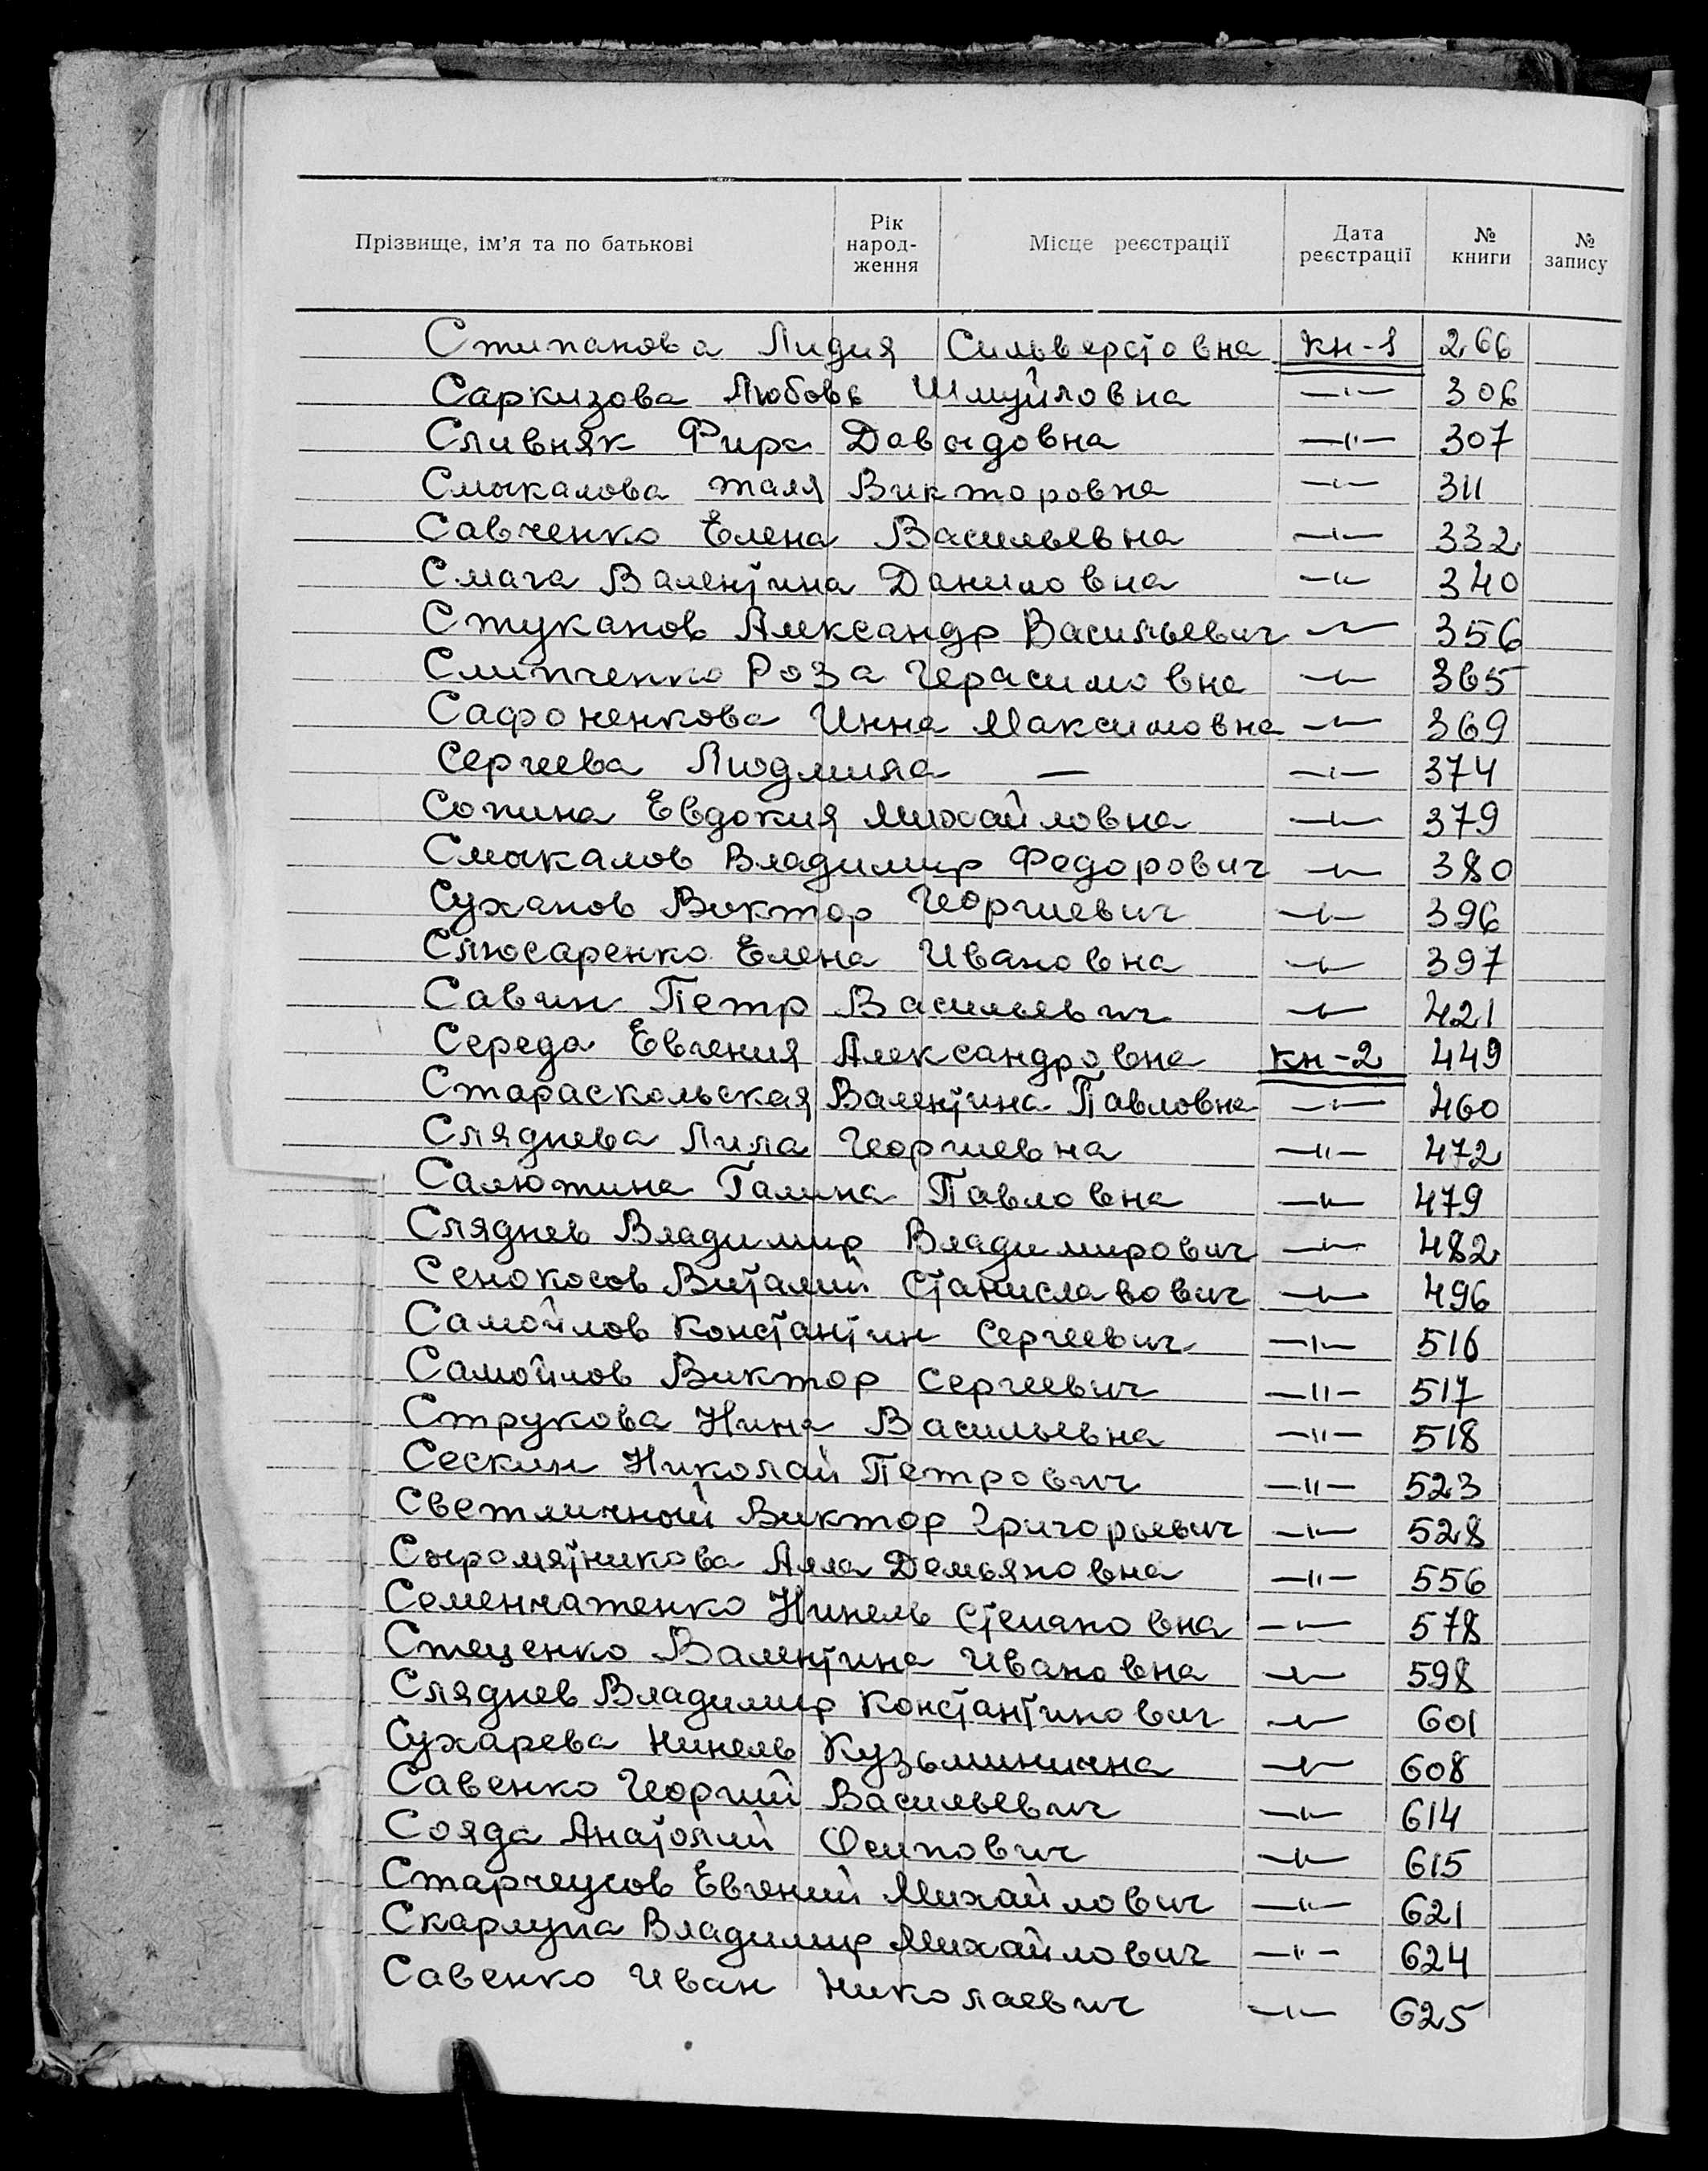 Прізвище, ім'я та по батькові Рік народ-ження Місце реєстрації Дата реєстрації № книги № запису
Стипанова Лидия Сильверстовна кн-1 266
Саркизова Любовь Шмуйловна —"— 306
Сливняк Фира Давыдовна —"— 307
Смыкалова Талля Викторовна —"— 311
Савченко Елена Васильевна —"— 332
Смага Валентина Даниловна —"— 340
Стуканов Александр Васильевич —"— 356
Слипченко Роза Герасимовна —"— 365
Сафоненкова Инна Максимовна —"— 369
Сергеева Людмила — —"— 374
Сопина Евдокия Михайловна —"— 379
Смыкалов Владимир Федорович —"— 380
Суханов Виктор Георгиевич —"— 396
Слюсаренко Елена Ивановна —"— 397
Савин Петр Васильевич —"— 421
Середа Евгения Александровна кн-2 449
Стараскольская Валентина Павловна —"— 460
Сляднева Лила Георгиевна —"— 472
Салютина Галина Павловна —"— 479
Сляднев Владимир Владимирович —"— 482
Сенокосов Виталий Станиславович —"— 496
Самойлов Константин Сергеевич —"— 516
Самойлов Виктор Сергеевич —"— 517
Струкова Нина Васильевна —"— 518
Сескин Николай Петрович —"— 523
Светличный Виктор Григорьевич —"— 528
Сыромятникова Алла Демьяновна —"— 556
Семенчатенко Нинель Степановна —"— 578
Стеценко Валентина Ивановна —"— 598
Сляднев Владимир Константинович —"— 601
Сухарева Нинель Кузьминична —"— 608
Савенко Георгий Васильевич —"— 614
Сояда Анатолий Осипович —"— 615
Старчеусов Евгений Михайлович —"— 621
Скарлупа Владимир Михайлович —"— 624
Савенко Иван Николаевич —"— 625